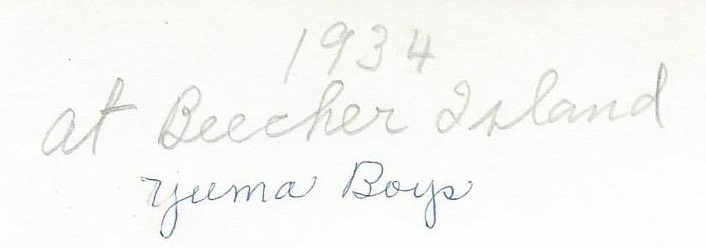 1934
at Beecher Island
Yuma Boys